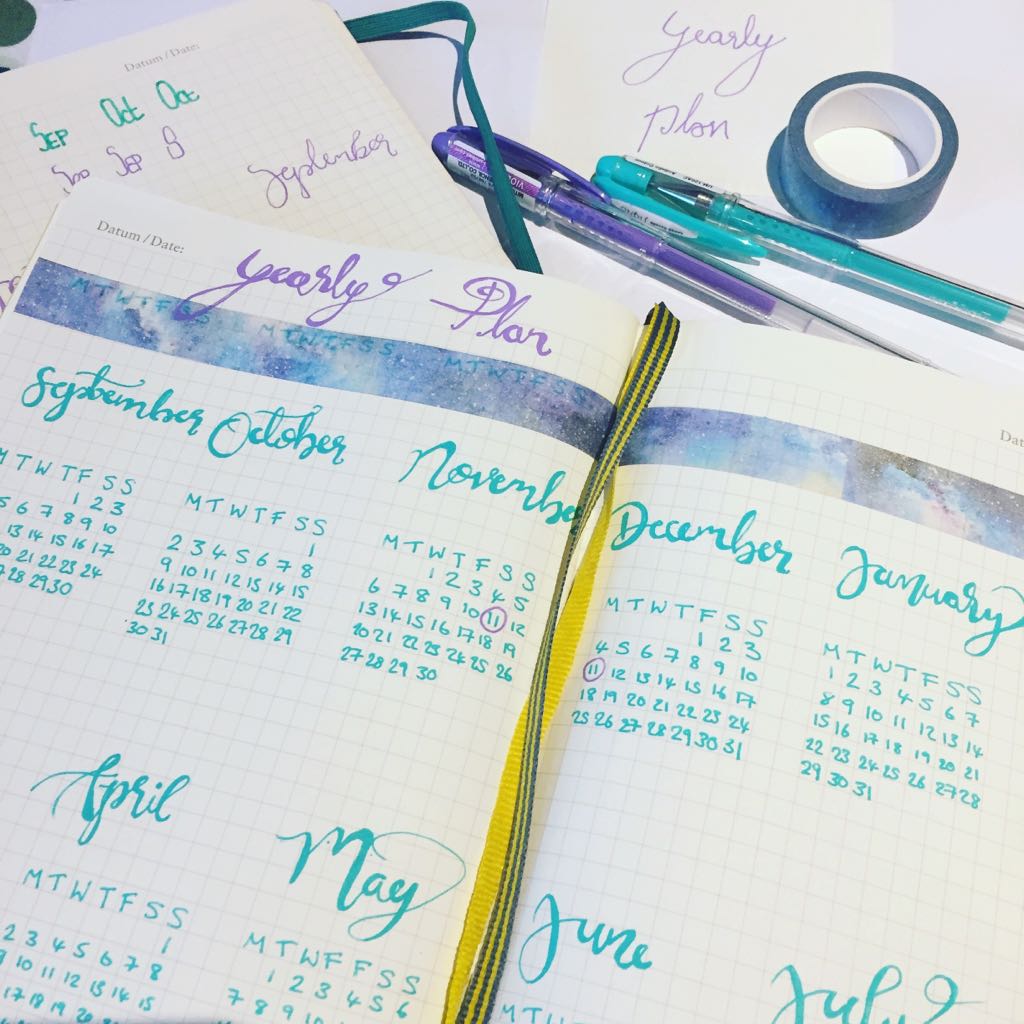 Datum / Date:
Sep Oct Oct
Sep S
September
Yearly
Plan
Datum / Date:
Yearly Plan
M T W T F S S M T W T F S S M T W T F S S
September
M T W T F S S
1 2 3
5 6 7 8 9 10
13 14 15 16 17
20 21 22 23 24
28 29 30
October
M T W T F S S
1
2 3 4 5 6 7 8
9 10 11 12 13 14 15
16 17 18 19 20 21 22
23 24 25 26 27 28 29
30 31
November
M T W T F S S
1 2 3 4 5
6 7 8 9 10 11 12
13 14 15 16 17 18 19
20 21 22 23 24 25 26
27 28 29 30
December
M T W T F S S
1 2 3
4 5 6 7 8 9 10
11 12 13 14 15 16 17
18 19 20 21 22 23 24
25 26 27 28 29 30 31
January
M T W T F S S
1 2 3 4 5 6 7
8 9 10 11 12 13 14
15 16 17 18 19 20 21
22 23 24 25 26 27 28
29 30 31
April
M T W T F S S
1
2 3 4 5 6 7 8
9 10 11 12 13 14 15
17 18 19
May
M T W T F F S S
1 2 3 4 5 6
7 8 9 10
June
M T W T
July